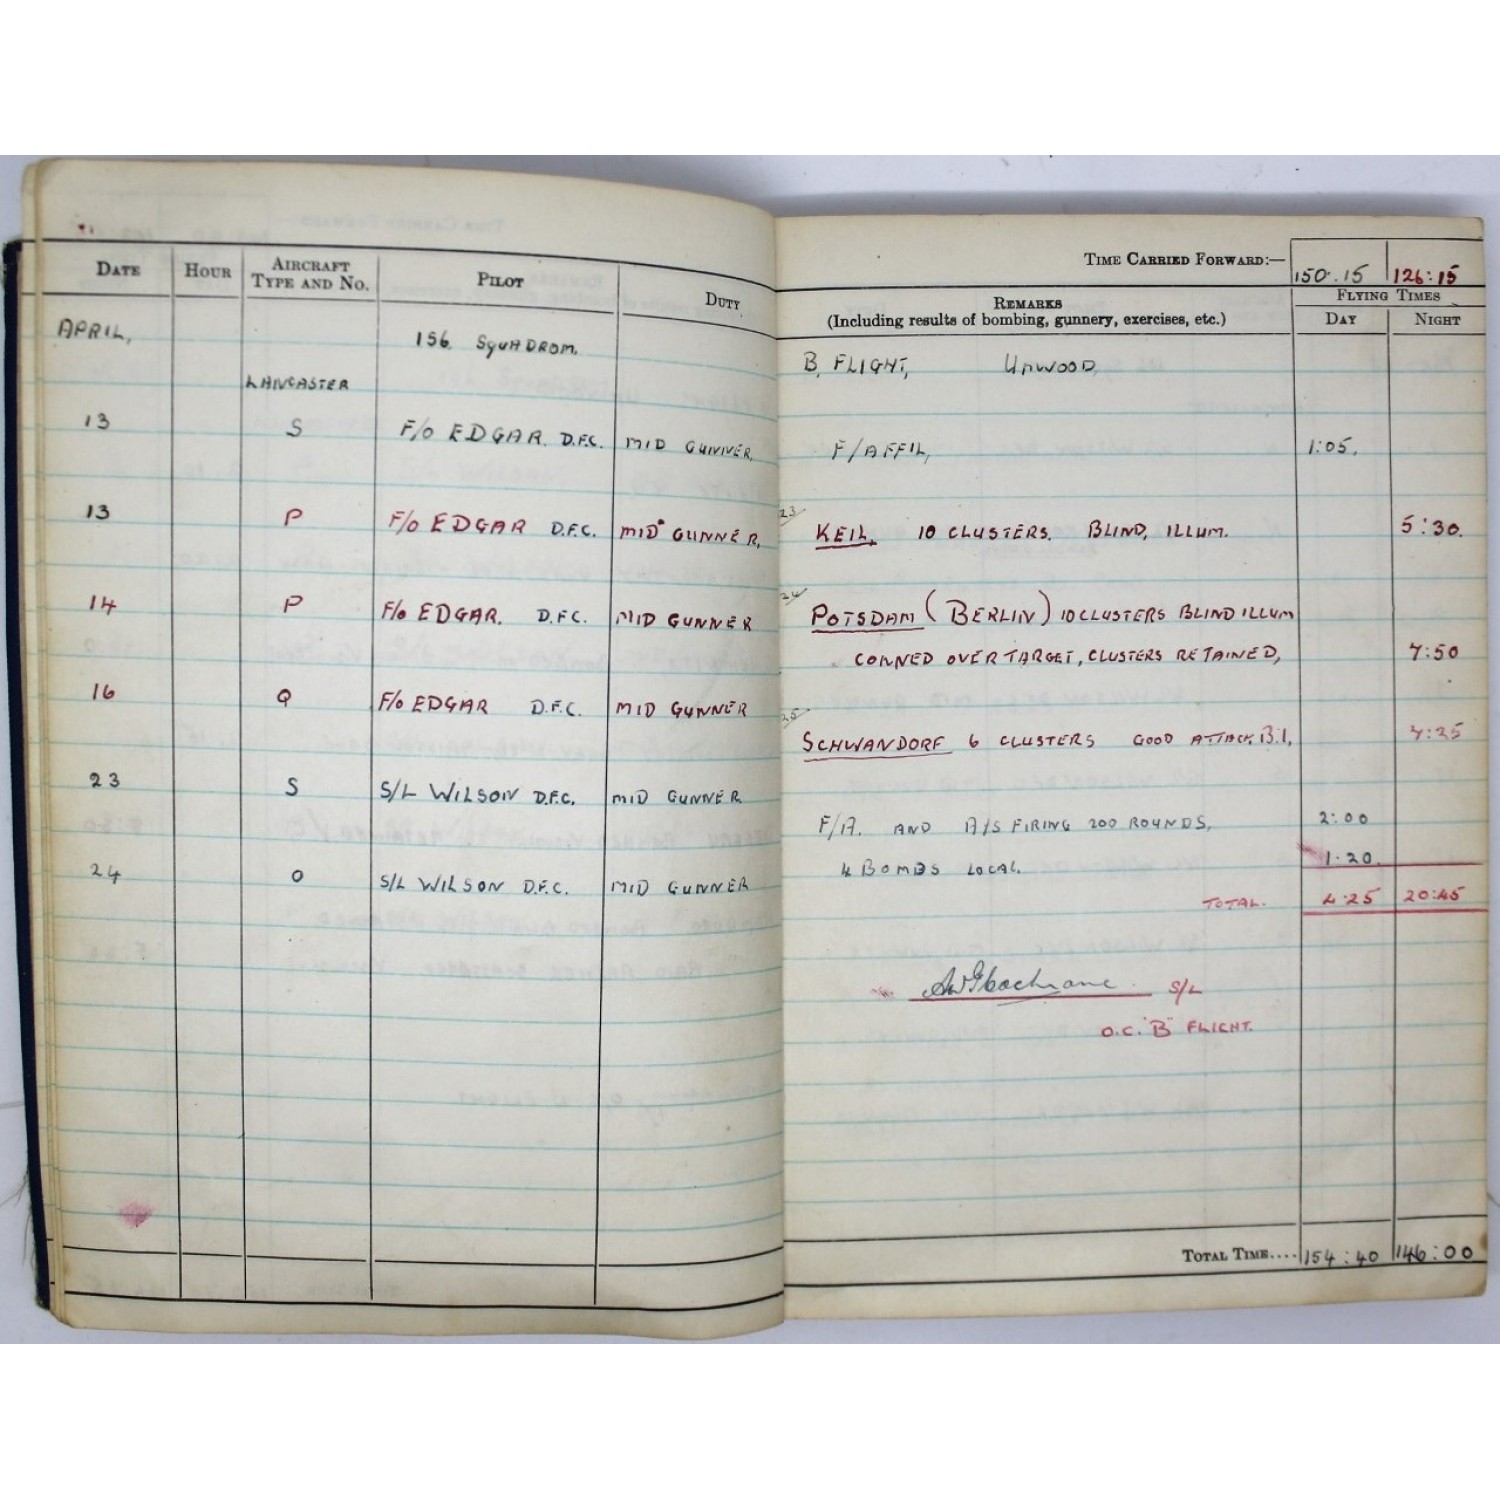 TIME CARRIED FORWARD:— 150.15 126:15
DATE HOUR AIRCRAFT TYPE AND No. PILOT DUTY REMARKS (Including results of bombing, gunnery, exercises, etc.) FLYING TIMES DAY NIGHT
APRIL, 156 SQUADROM. B, FLIGHT, UPWOOD,
LANCASTER
13 S F/O EDGAR. D.F.C. MID GUNNER, F/AFFIL, 1:05.
13 P F/O EDGAR D.F.C. MID GUNNER, 23 KEIL, 10 CLUSTERS. BLIND, ILLUM. 5:30.
14 P F/O EDGAR. D.F.C. MID GUNNER 24 POTSDAM (BERLIN) 10 CLUSTERS BLIND ILLUM
CONNED OVER TARGET, CLUSTERS RETAINED, 7:50
16 Q F/O EDGAR D.F.C. MID GUNNER 25 SCHWANDORF 6 CLUSTERS GOOD ATTACK. B.I, 7:25
23 S S/L WILSON D.F.C. MID GUNNER F/A. AND A/S FIRING 200 ROUNDS, 2:00
24 O S/L WILSON D.F.C. MID GUNNER 4 BOMBS LOCAL. 1.20
TOTAL. 4:25 20:45
Cochrane S/L
O.C. "B" FLIGHT.
TOTAL TIME.... 154:40 146:00